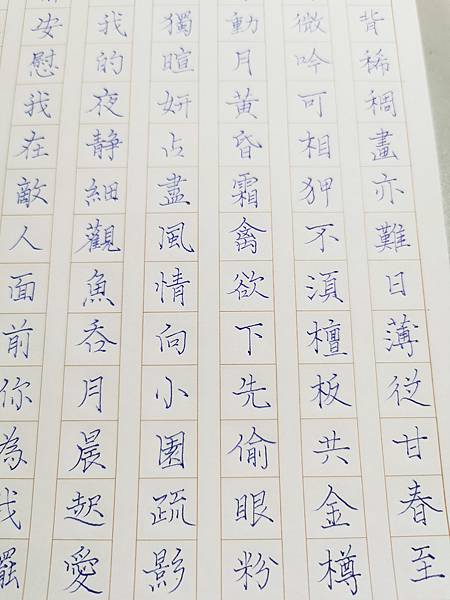 背稀稠畫亦難日薄從甘春至
微吟可相狎不須檀板共金樽
動月黃昏霜禽欲下先偷眼粉
獨暄妍占盡風情向小園疏影
我的夜靜細觀魚吞月晨起愛
安慰我在敵人面前你為我擺